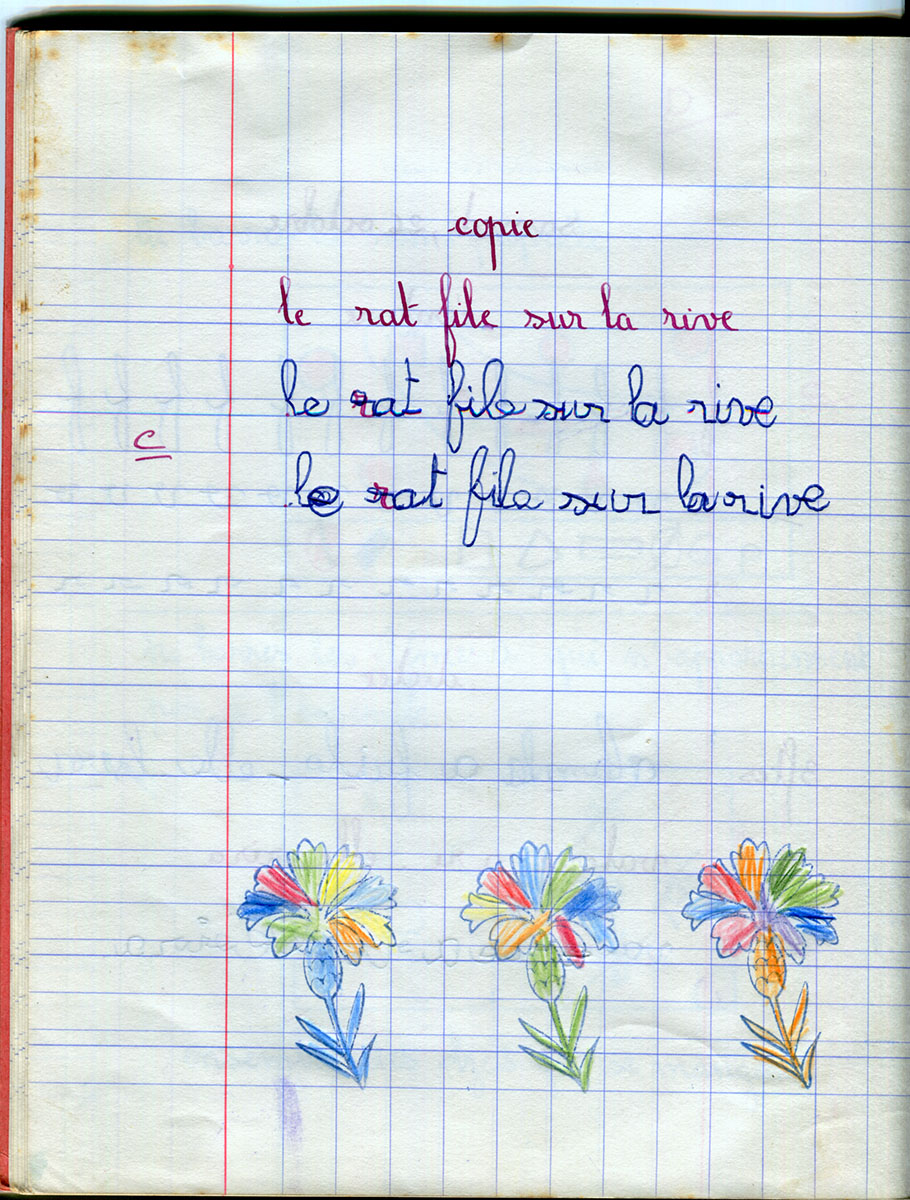 copie
le rat file sur la rive
le rat file sur la rive
c
le rat file sur la rive